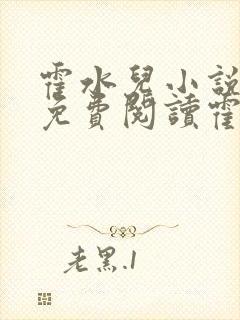 霍水兒小說
免費閱讀霍
老黑.1